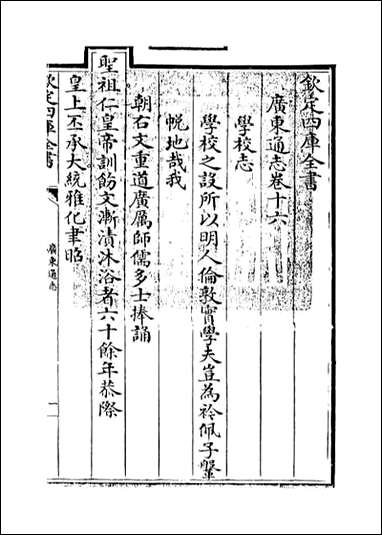 欽定四庫全書
廣東通志卷十六
學校志
學校之設所以明人倫敦實學夫豈為衿佩子鞶
帨地哉我
朝右文重道廣厲師儒多士捧誦
聖祖仁皇帝訓飭文漸漬沐浴者六十餘年恭際
皇上丕承大統雅化聿昭
欽定四庫全書
廣東通志
一